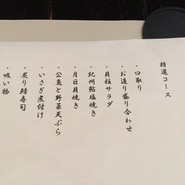 特選コース
・口取り
・お造り盛り合わせ
・貝柱サラダ
・紀州鮎塩焼き
・月日貝焼き
・公魚と野菜天ぷら
・いさぎ煮付け
・炙り鯖寿司
・吸い物